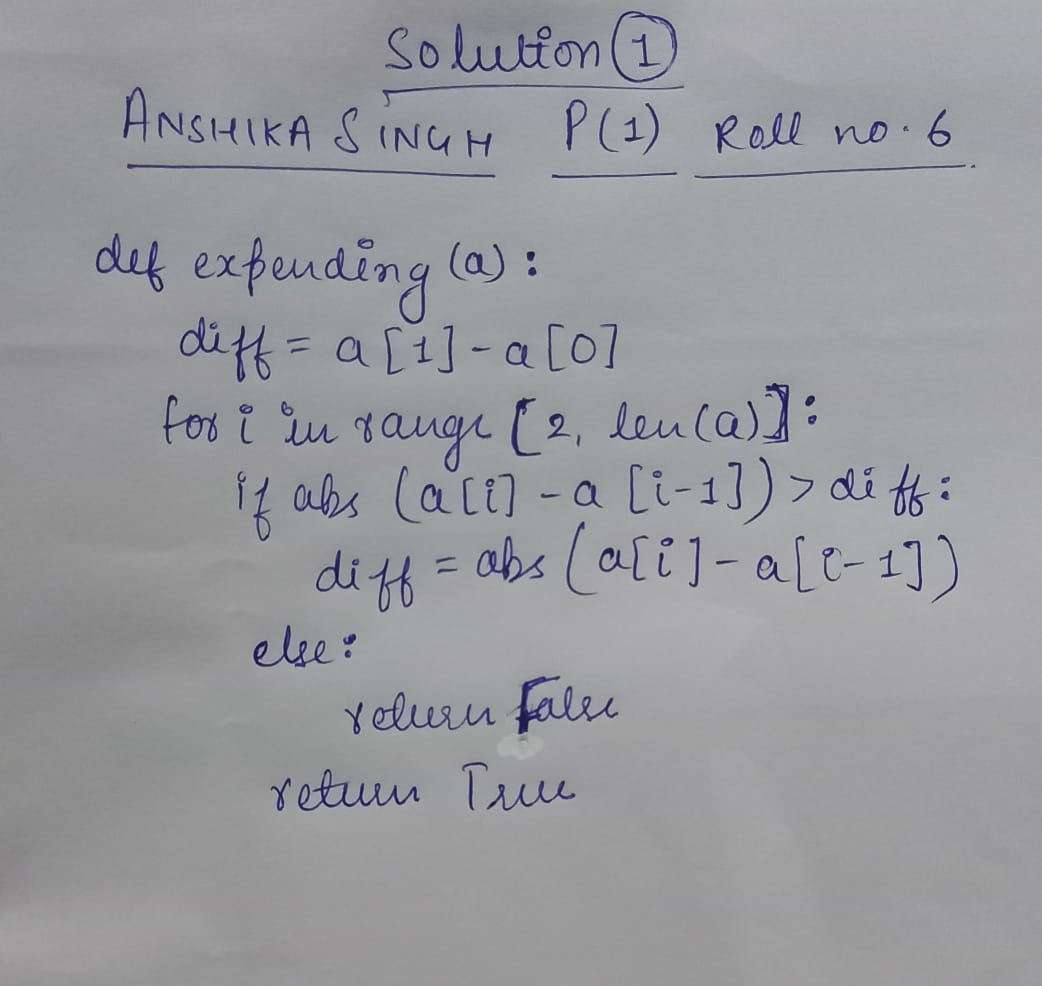 Solution 1
ANSHIKA SINGH P(1) Roll no. 6
def expending (a) :
diff = a [1] - a [0]
for i in range [2, len(a)] :
if abs (a[i] - a [i-1]) > diff :
diff = abs (a[i] - a[i-1])
else :
return False
return True